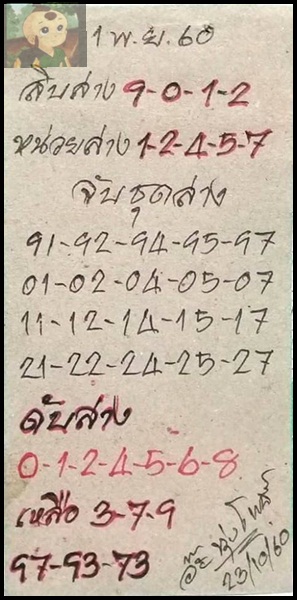 1 พ.ย. 60
สิบล่าง 9-0-1-2
หน่วยล่าง 1-2-4-5-7
จับชุดล่าง
91-92-94-95-97
01-02-04-05-07
11-12-14-15-17
21-22-24-25-27
ดับล่าง
0-1-2-4-5-6-8
เหลือ 3-7-9
97-93-73
23/10/60